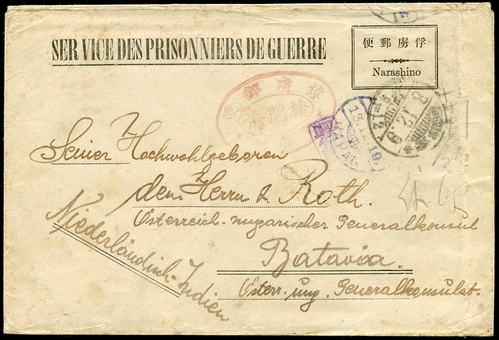 SERVICE DES PRISONNIERS DE GUERRE
便郵虜俘
Narashino
JAPAN
Seiner Hochwohlgeboren
dem Herrn L. Roth.
Österreich-ungarischer Generalkonsul
Batavia.
Österr. ung. Generalkonsulat.
Niederländisch-Indien